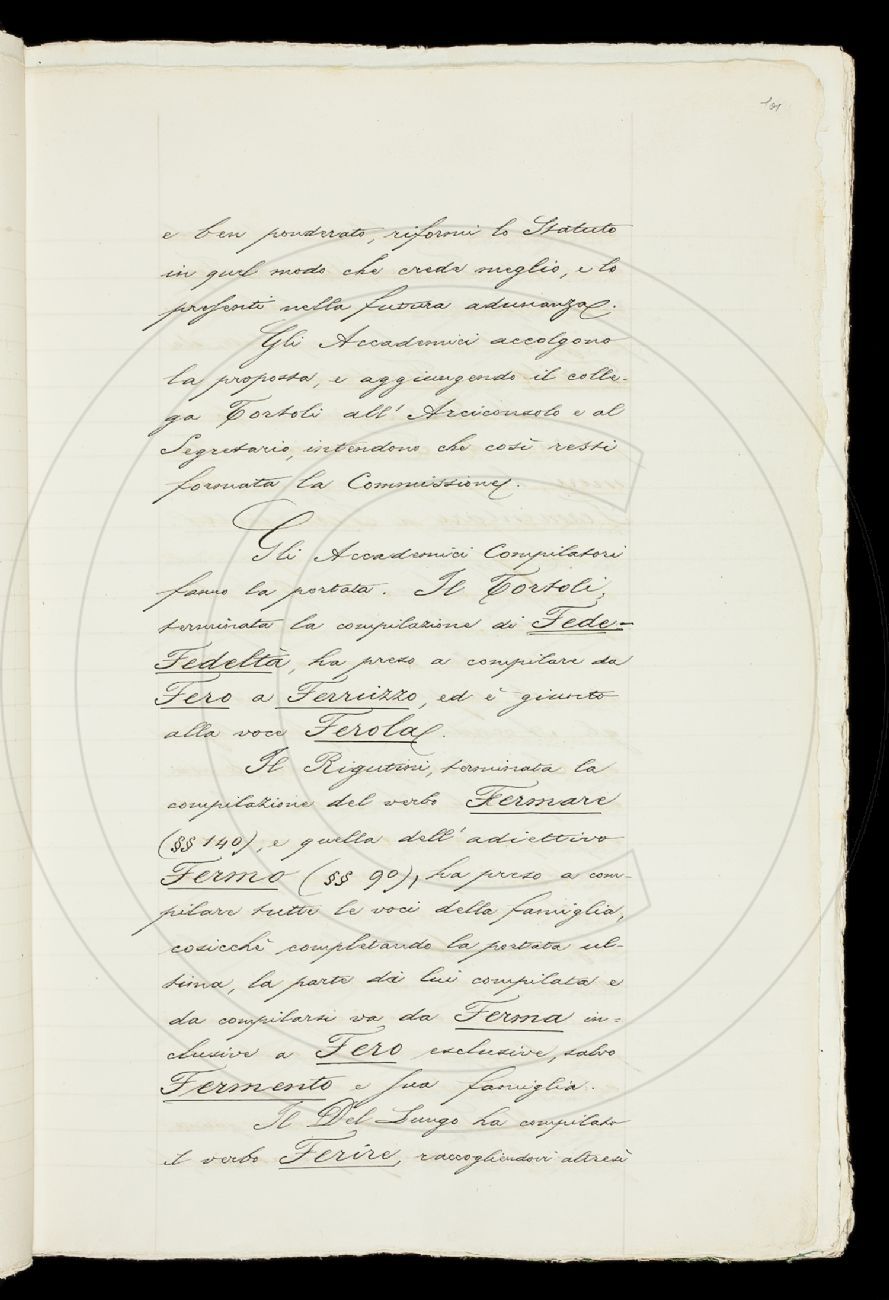 101
e ben ponderato, riformi lo Statuto
in quel modo che crede meglio, e lo
presenti nella futura adunanza.
Gli Accademici accolgono
la proposta, e aggiungendo il colle-
ga Tortoli all' Arciconsolo e al
Segretario, intendono che così resti
formata la Commissione.
Gli Accademici Compilatori
fanno la portata. Il Tortoli,
terminata la compilazione di Fede-
Fedeltà, ha preso a compilare da
Fero a Ferruzzo, ed è giunto
alla voce Ferola.
Il Rigutini, terminata la
compilazione del verbo Fermare
(§§ 140), e quella dell' adiettivo
Fermo (§§ 90), ha preso a com-
pilare tutte le voci della famiglia,
cosicchè completando la portata ul-
tima, la parte da lui compilata e
da compilarsi va da Ferma in-
clusive a Fero esclusive, salvo
Fermento e sua famiglia.
Il Del Lungo ha compilato
il verbo Ferire, raccogliendovi altresì